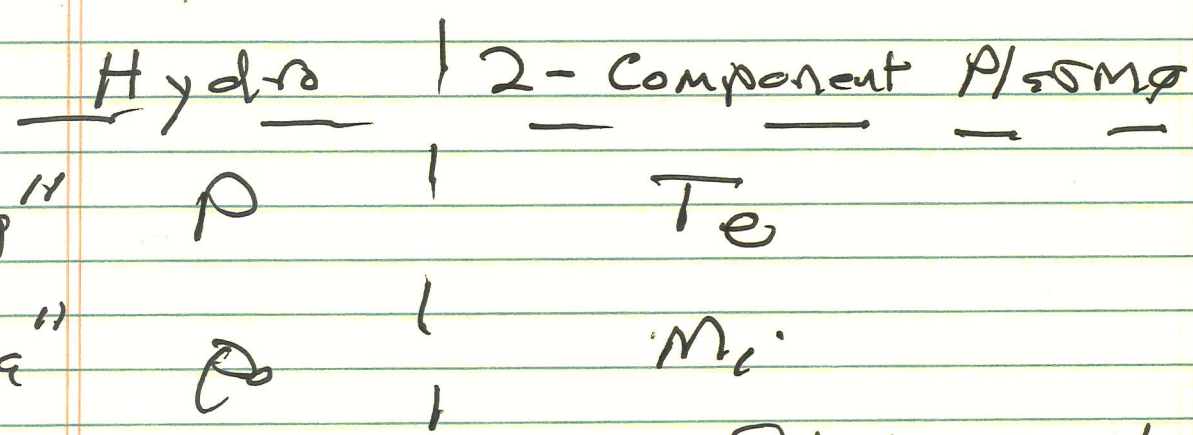 Hydro | 2 - Component Plasma
" P | Te
" ρ₀ | Mi